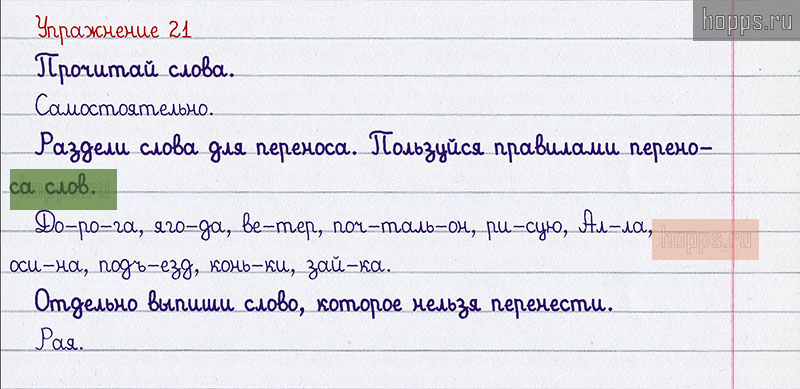 hopps.ru
Упражнение 21
Прочитай слова.
Самостоятельно.
Раздели слова для переноса. Пользуйся правилами перено-
са слов.
До-ро-га, яго-да, ве-тер, поч-таль-он, ри-сую, Ал-ла,
hopps.ru
оси-на, подъ-езд, конь-ки, зай-ка.
Отдельно выпиши слово, которое нельзя перенести.
Рая.